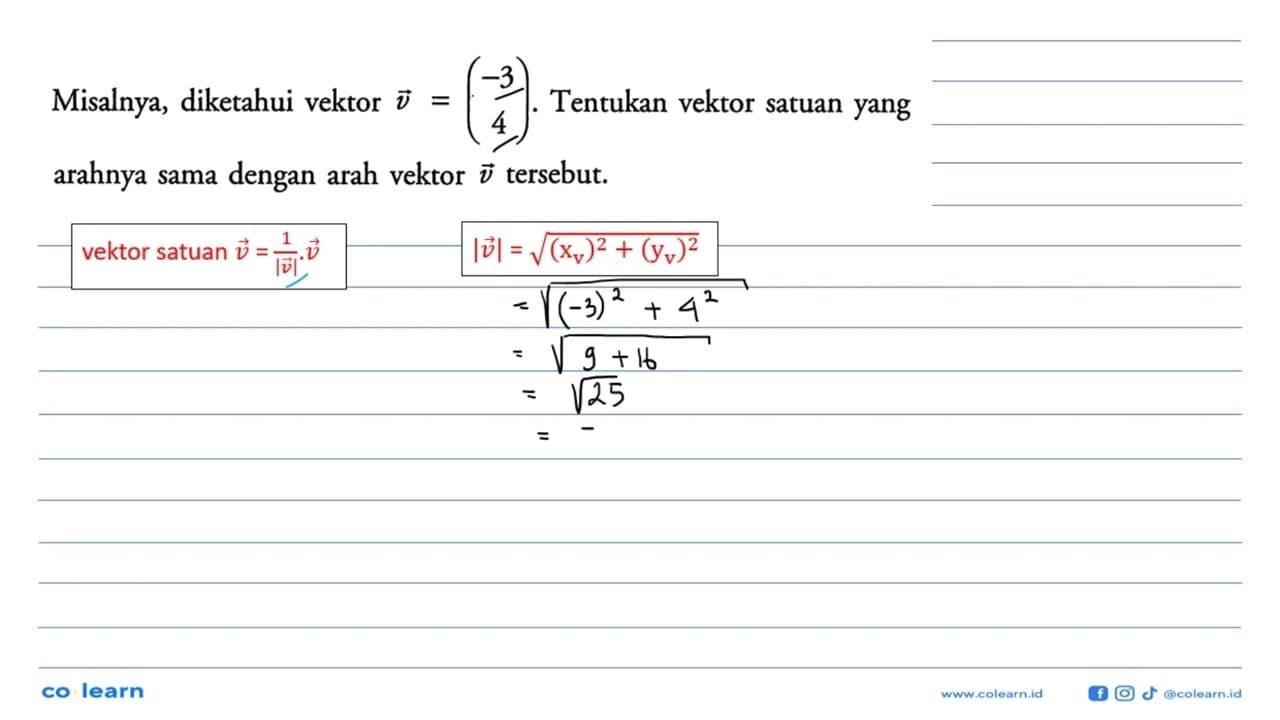 Misalnya, diketahui vektor v⃗ = (−3 4). Tentukan vektor satuan yang
arahnya sama dengan arah vektor v⃗ tersebut.
vektor satuan v⃗ = 1/|v⃗| . v⃗
|v⃗| = √((xᵥ)² + (yᵥ)²)
= √((-3)² + 4²)
= √(9 + 16)
= √25
= -
co learn
www.colearn.id
@colearn.id